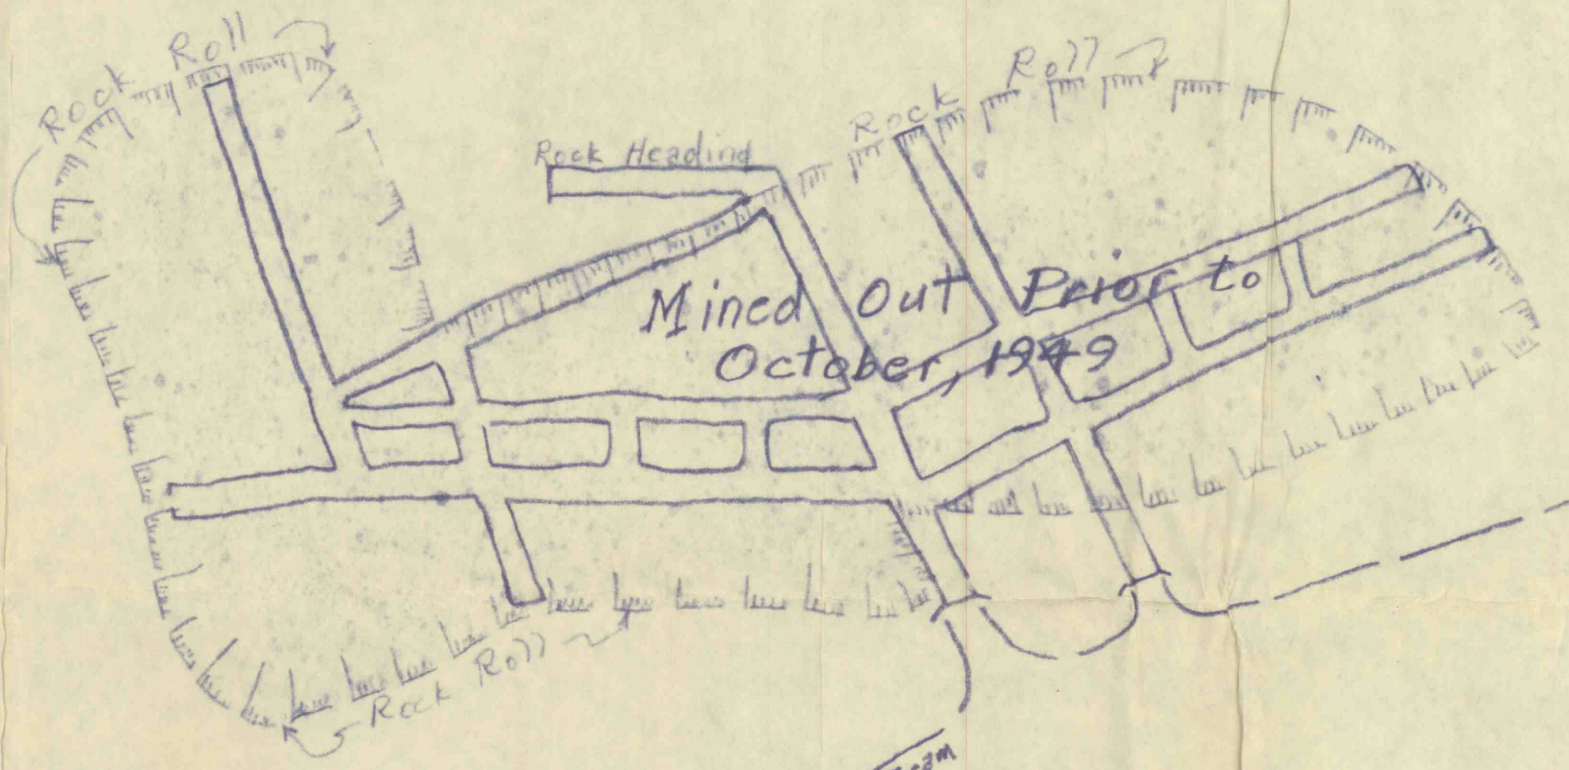 Rock Roll
Rock Heading
Rock Roll
Mined Out Prior to
October, 1949
Rock Roll